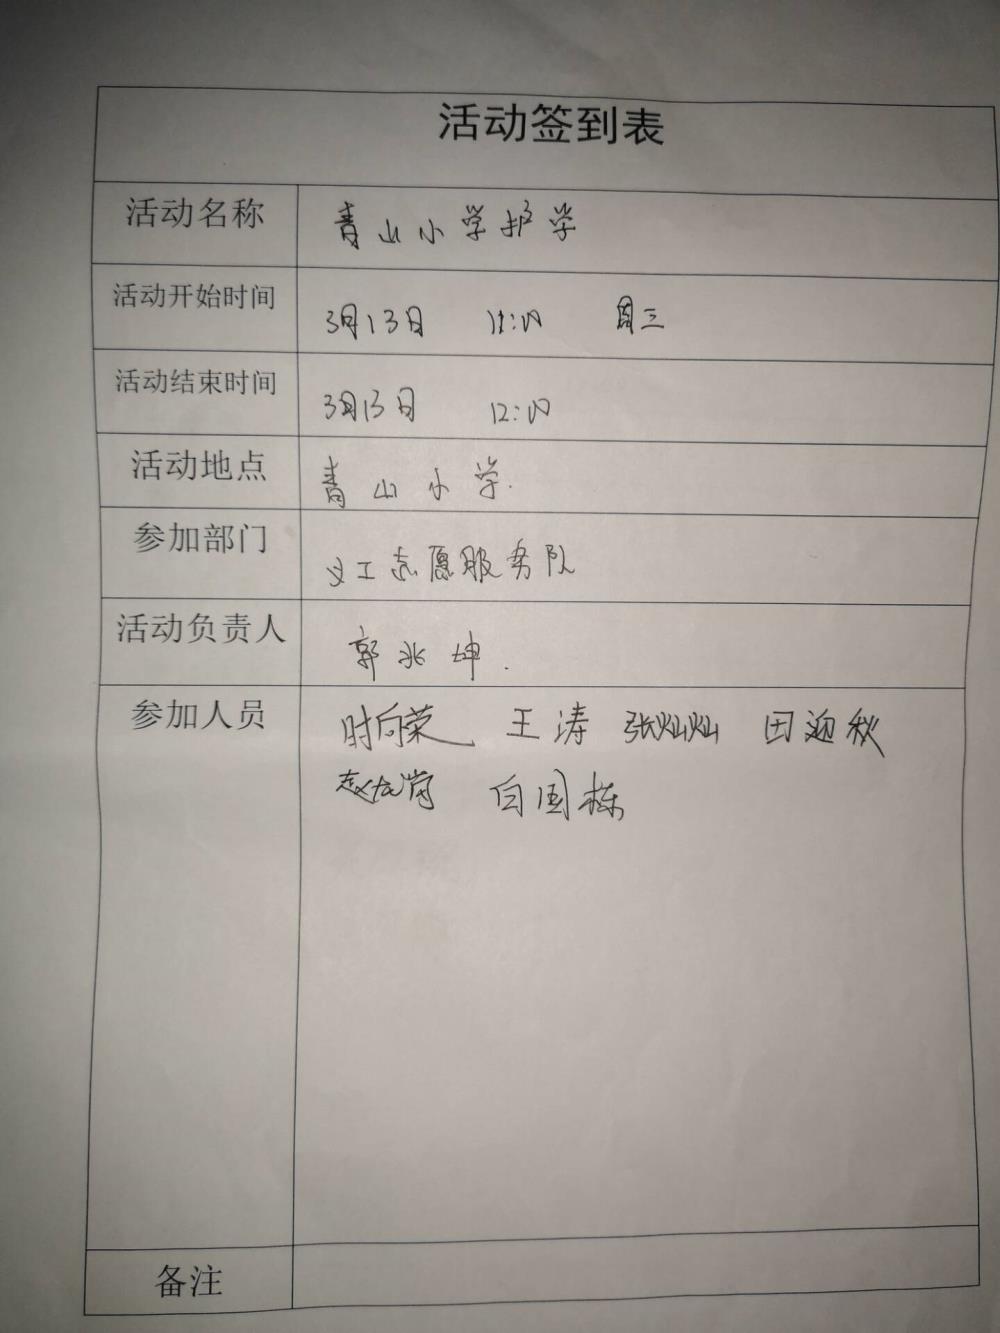 活动签到表
活动名称 青山小学护学
活动开始时间 3月13日 11:00 周三
活动结束时间 3月13日 12:00
活动地点 青山小学.
参加部门 义工志愿服务队
活动负责人 郭兆坤.
参加人员 时向荣 王涛 张灿灿 田迎秋
白国栋
备注